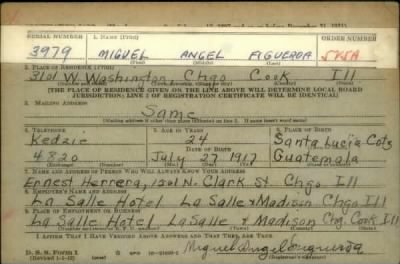 SERIAL NUMBER 1. NAME (Print)
3979 MIGUEL ANGEL FIGUEROA
(First) (Middle) (Last)
2. PLACE OF RESIDENCE (Print)
3101 W. Washington Chgo Cook Ill
[THE PLACE OF RESIDENCE GIVEN ON THE LINE ABOVE WILL DETERMINE LOCAL BOARD
JURISDICTION; LINE 2 OF REGISTRATION CERTIFICATE WILL BE IDENTICAL]
3. MAILING ADDRESS
Same
4. TELEPHONE 5. AGE IN YEARS 6. PLACE OF BIRTH
Kedzie 24 Santa Lucia Cotz
DATE OF BIRTH
4820 July 27 1917 Guatemala
7. NAME AND ADDRESS OF PERSON WHO WILL ALWAYS KNOW YOUR ADDRESS
Ernest Herrera, 1501 N. Clark St. Chgo Ill
8. EMPLOYER'S NAME AND ADDRESS
La Salle Hotel La Salle & Madison Chgo Ill
9. PLACE OF EMPLOYMENT OR BUSINESS
La Salle Hotel LaSalle & Madison Chgo Cook Ill
I AFFIRM THAT I HAVE VERIFIED ABOVE ANSWERS AND THAT THEY ARE TRUE.
D. S. S. Form 1 Miguel Angel Figueroa